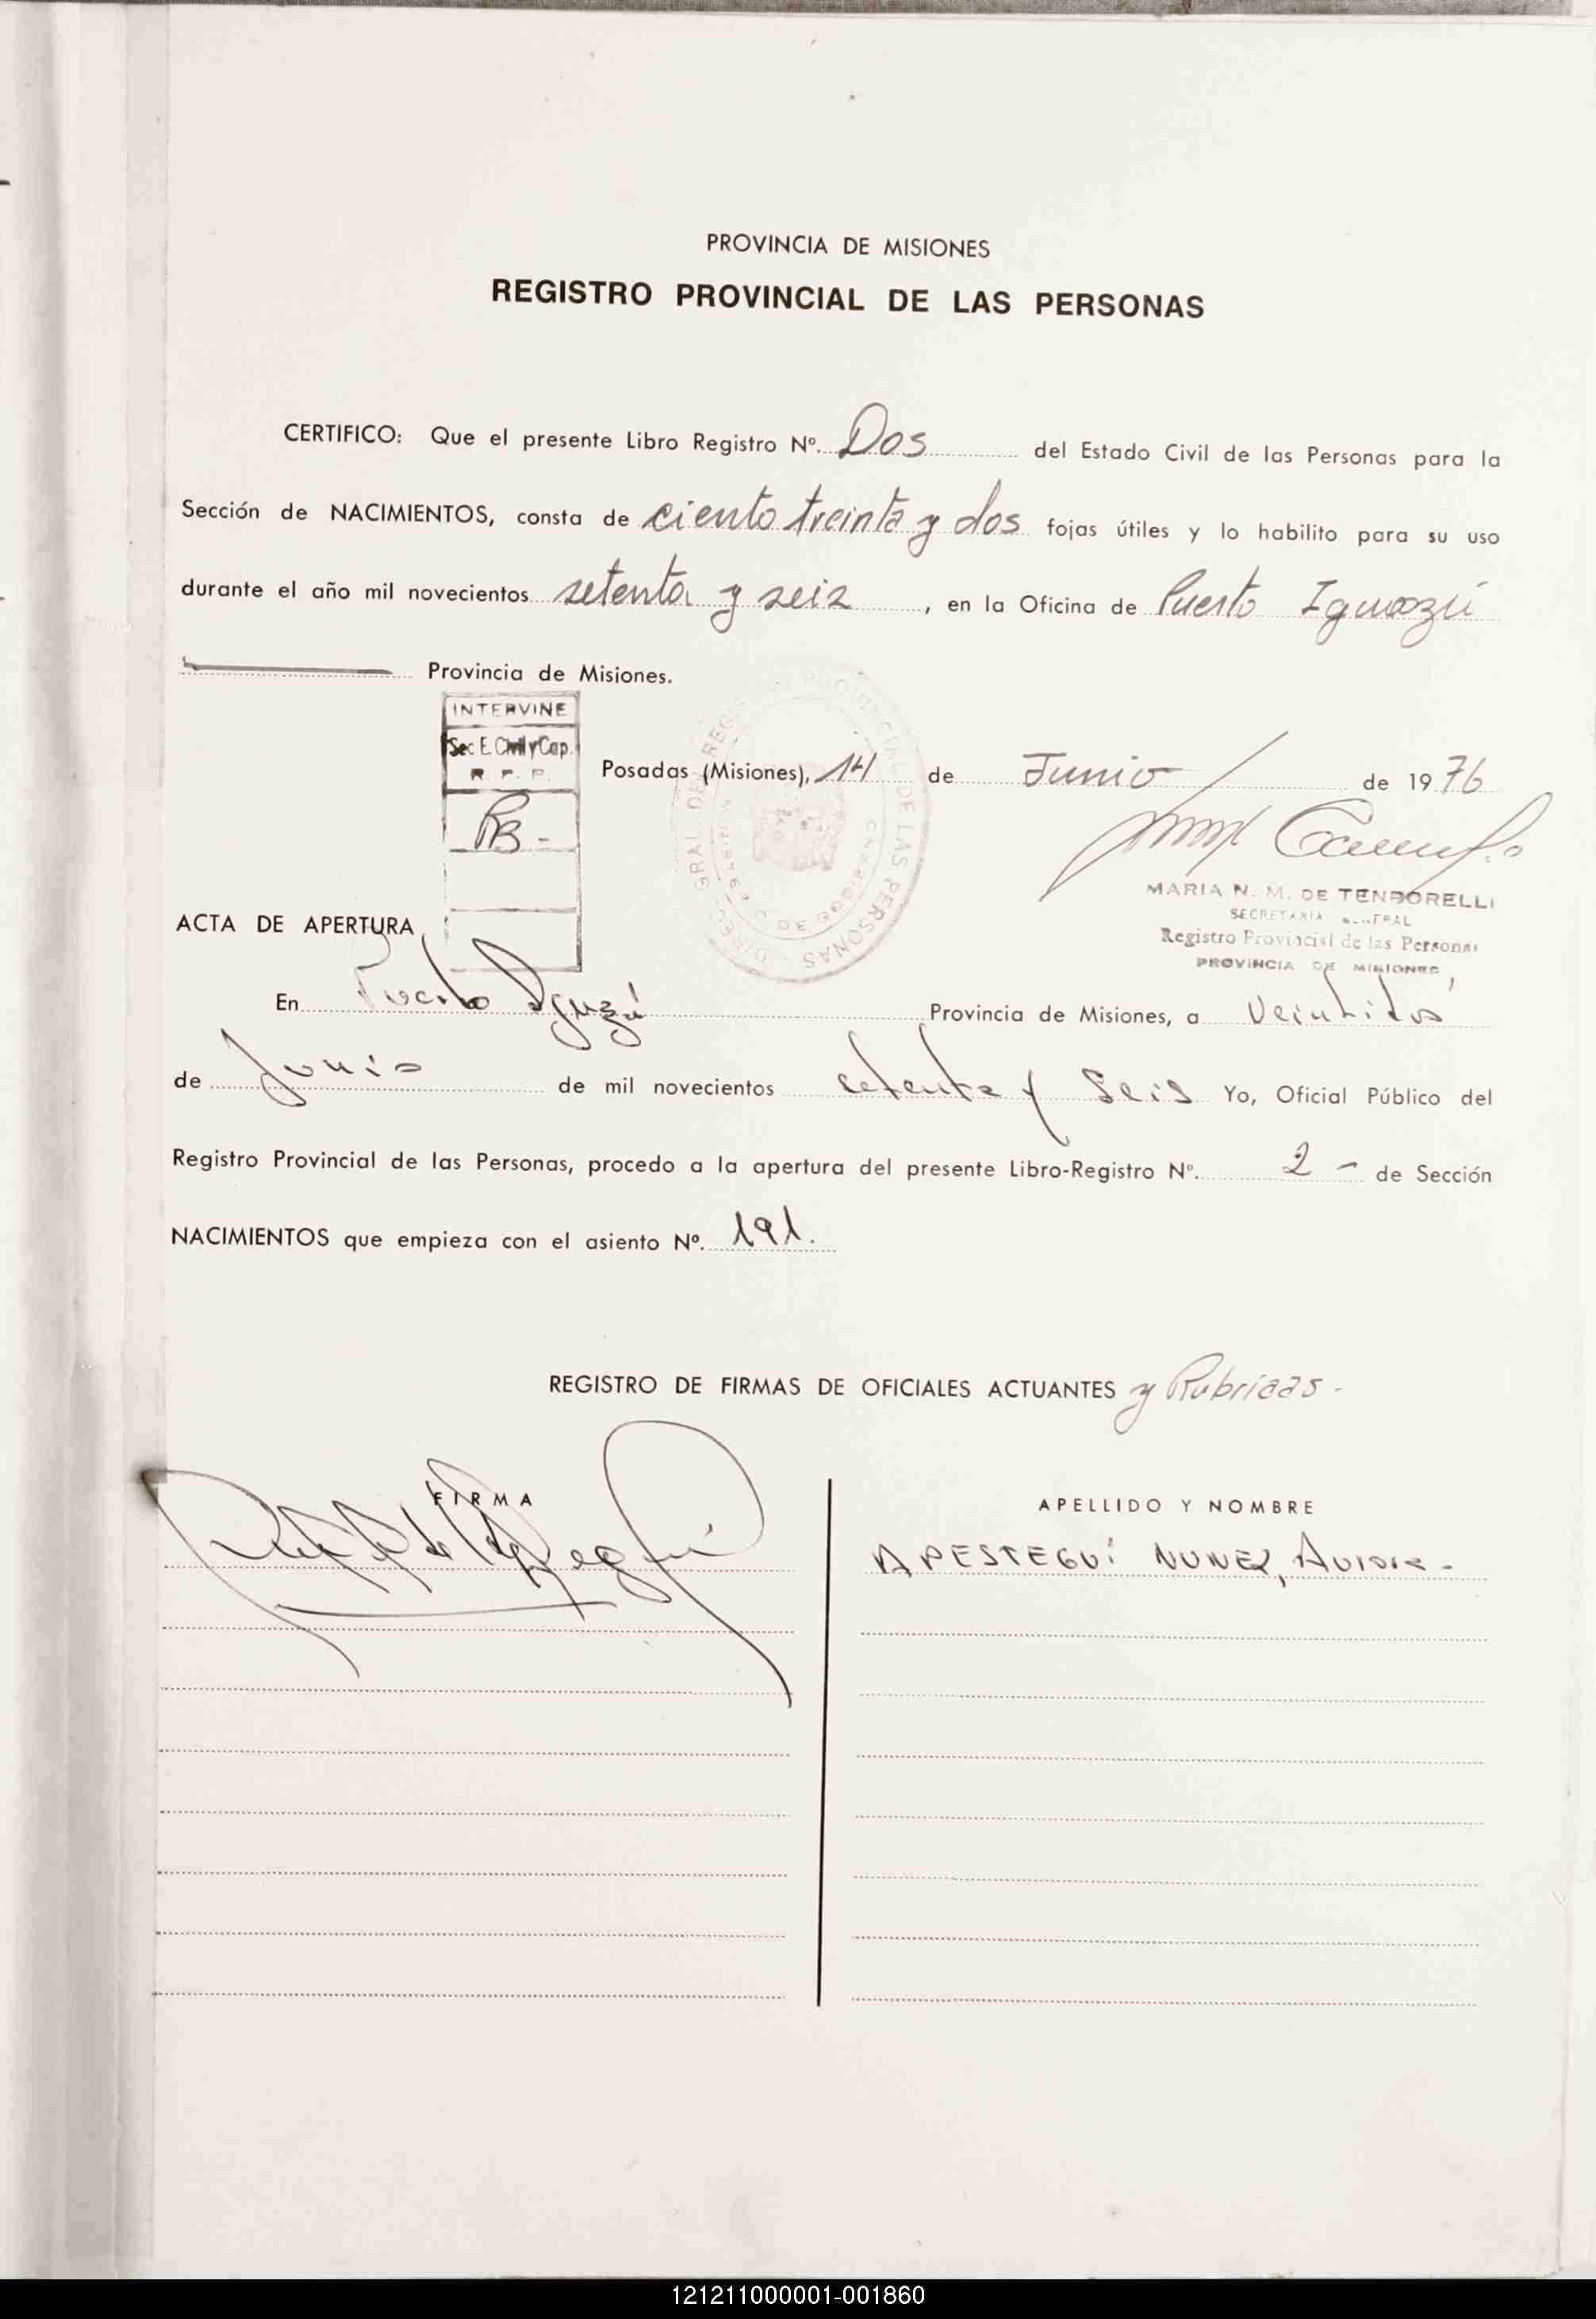 PROVINCIA DE MISIONES
REGISTRO PROVINCIAL DE LAS PERSONAS
CERTIFICO: Que el presente Libro Registro Nº. Dos del Estado Civil de las Personas para la
Sección de NACIMIENTOS, consta de ciento treinta y dos fojas útiles y lo habilito para su uso
durante el año mil novecientos setenta y seis, en la Oficina de Puerto Iguazú
Provincia de Misiones.
INTERVINE
Sec E. Civil y Cap.
R. P. P.
Posadas (Misiones), 14 de Junio de 1976
MARIA N. M. DE TENDORELLI
SECRETARIA GENERAL
Registro Provincial de las Personas
PROVINCIA DE MISIONES
ACTA DE APERTURA
En Puerto Iguazú Provincia de Misiones, a Veintidós
de Junio de mil novecientos setenta y seis Yo, Oficial Público del
Registro Provincial de las Personas, procedo a la apertura del presente Libro-Registro Nº. 2 - de Sección
NACIMIENTOS que empieza con el asiento Nº. 191.
REGISTRO DE FIRMAS DE OFICIALES ACTUANTES y Rubricas -
FIRMA
APELLIDO Y NOMBRE
APESTEGUÍ NUNEZ,
121211000001-001860